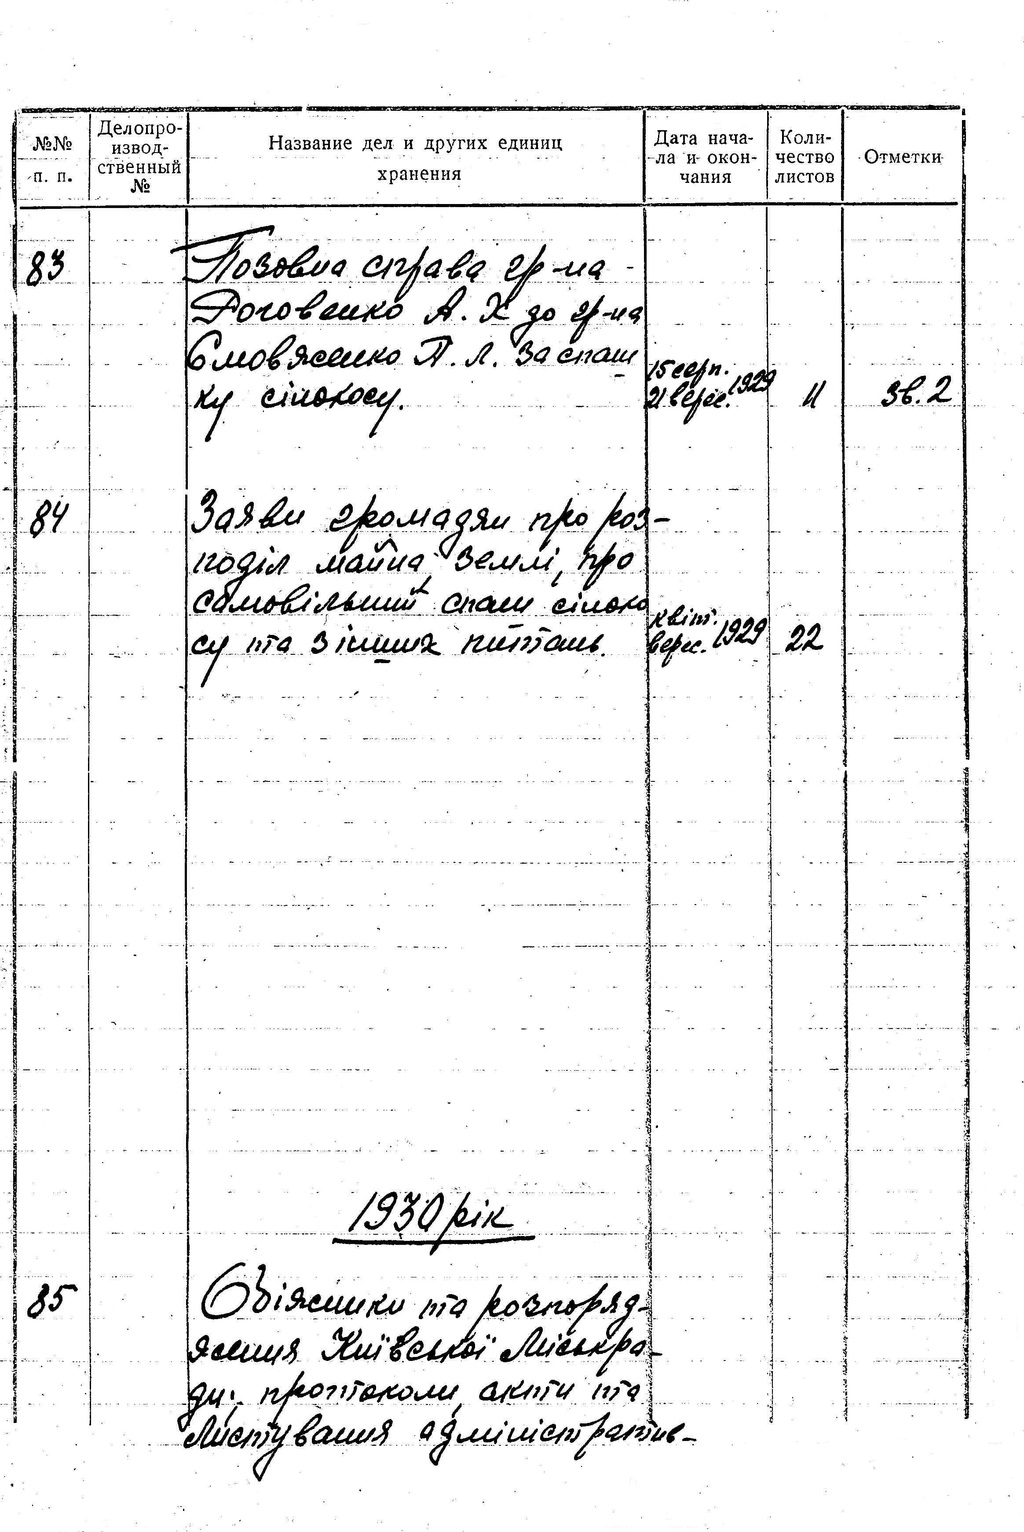 №№ п. п.
Делопро-
извод-
ственный
№
Название дел и других единиц
хранения
Дата нача-
ла и окон-
чания
Коли-
чество
листов
Отметки
83
Позовна справа гр-на
Роговенко А. Х до гр-на
П. Л. за спаш
ку сінокосу.
15 серп.
21 верес. 1929
11
Зв. 2
84
Заяви громадян про роз-
поділ майна, землі, про
самовільний спаш сіноко
су та з інших питань.
квіт.
верес. 1929
22
1930 рік
85
Обіжники та розпоряд-
ження Київської Міськра-
ди; протоколи, акти та
листування адміністратив-